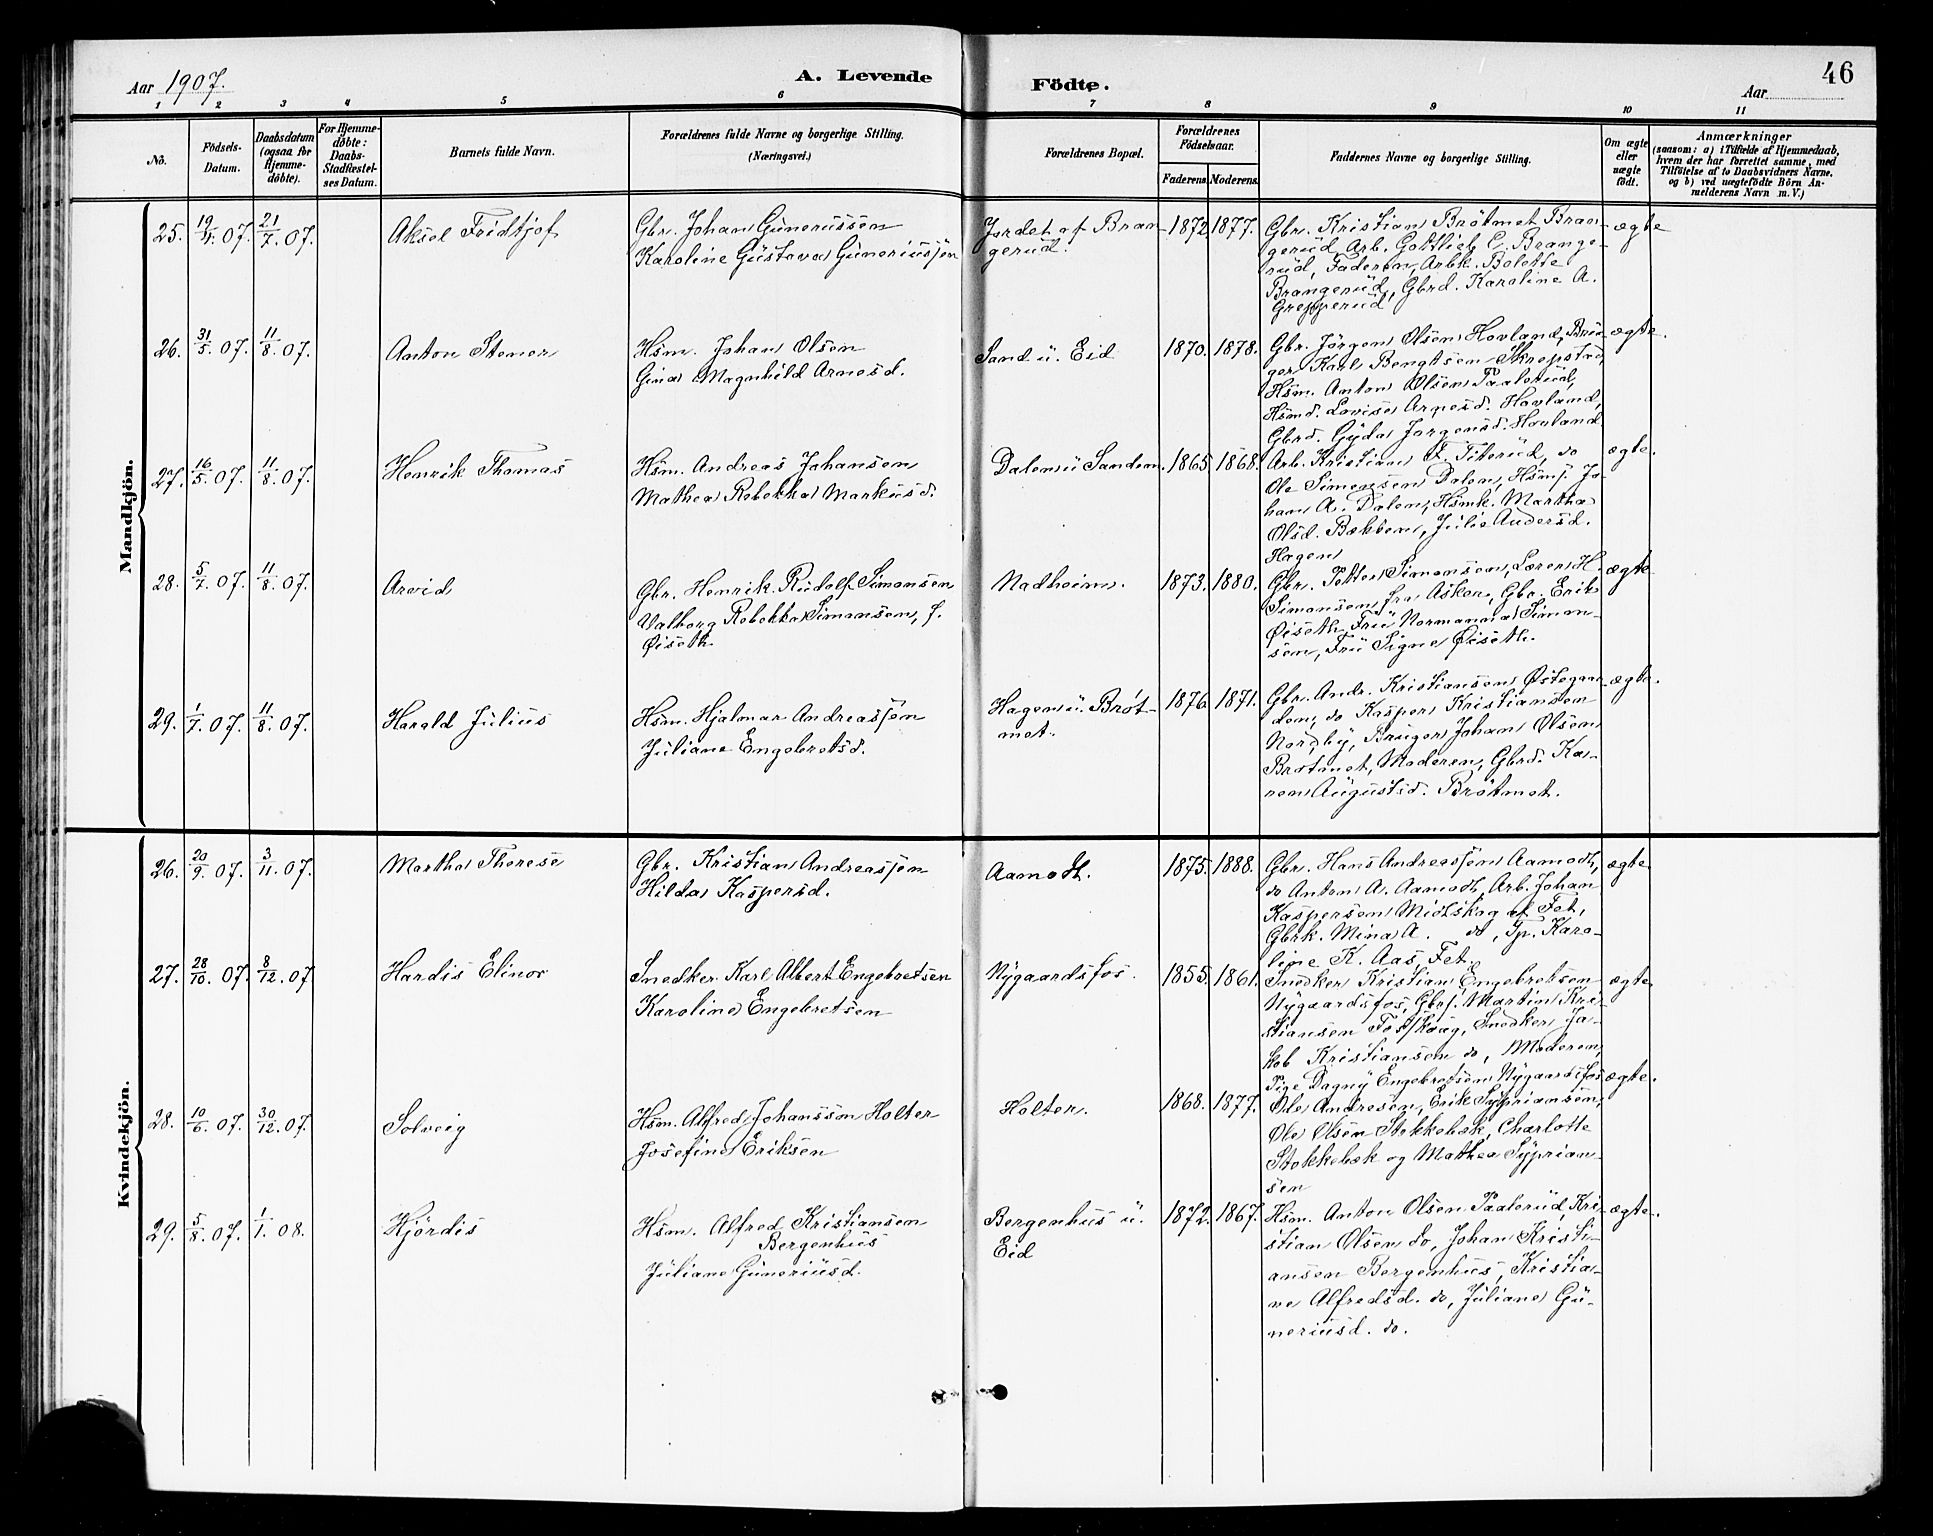 Aar 1907.
A. Levende
Födte.
Aar
46
1 2 3 4 5 6 7 8 9 10 11
No.
Födsels-Datum.
Daabsdatum (ogsaa for Hjemme-döbte).
For Hjemme-döbte: Daabs-Stadfæstel-ses Datum.
Barnets fulde Navn.
Forældrenes fulde Navne og borgerlige Stilling.
(Næringsvei.)
Forældrenes Bopæl.
Forældrenes Födselsaar.
Faderens. Moderens.
Faddernes Navne og borgerlige Stilling.
Om ægte eller uægte födt.
Anmærkninger
(saasom: a) i Tilfælde af Hjemmedaab,
hvem der har forrettet samme, med
Tilföielse af to Daabsvidners Navne.
og b) ved uægtefödte Börn An-
melderens Navn m. V.)
Mandkjön.
25. 19/4 07. 21/7 07. Aksel Fridtjof
Gbr. Johan Gunerussen
Karoline Gustava Guneriussen
Jordet af Bran-
gerud.
1872 1877.
Gbr. Kristian Brötmet Bran-
gerud, Arb. Gottlieb C. Brange-
rud, Faderen, Arbk. Bolette
Brangerud, Gbrd. Karoline A.
Grepperud
ægte
26. 31/5 07. 11/8 07. Anton Stener
Hsm. Johan Olsen
Gina Magnhild Arnesd.
Sand u. Eid
1870. 1878.
Gbr. Jörgen Olsen Hovland, Bru-
ger Karl Bengtsen Skrepstad,
Hsm. Anton Olsen Paalerud,
Hsmd. Lovise Arnesd. Hovland,
Gbrd. Gyda Jorgensd. Hovland
ægte.
27. 16/5 07. 11/8 07. Henrik Thomas
Hsm. Andreas Johansen
Mathea Rebekka Markusd.
Dalen u Sanden.
1865 1868.
Arb. Kristian F. Titerud, do
Ole Simensen Dalen, Hsms. Jo-
han A. Dalen, Hsmk. Martha
Olsd. Bekken, Julie Andersd.
Hagen
ægte.
28. 5/7 07. 11/8 07. Arvid
Gbr. Henrik Rudolf Simensen
Valborg Rebekka Simensen, f.
Øiseth
Nadheim.
1873. 1880.
Gbr. Petter Simensen, Lærer H.
Simensen fra Asker, Gbr. Erik
Øiseth, Fru Normanna Simen-
sen, Fru Signe Øiseth.
ægte
29. 1/7 07. 11/8 07. Harald Julius
Hsm. Hjalmar Andreassen
Juliane Engebretsd.
Hagen u. Bröt-
met.
1876 1871.
Gbr. Andr. Kristiansen Østegaar-
den, do Kasper Kristiansen
Nordby, Bruger Johan Olsen
Brötmet, Moderen, Gbrd. Ka-
ren Augustsd. Brötmet.
ægte.
Kvindekjön.
26. 20/9 07. 3/11 07. Martha Therese
Gbr. Kristian Andreassen
Hilda Kaspersd.
Aamodt.
1875. 1888.
Gbr. Hans Andreassen Aamodt,
do Anton A. Aamodt, Arb. Johan
Kaspersen Midtskog af Fet,
Gbrk. Mina A. do, Tp. Karo-
line K. Aas, Fet.
ægte
27. 28/10 07. 8/12 07 Hardis Elinor
Snedker Karl Albert Engebretsen
Karoline Engebretsen
Nygaardsfos.
1855. 1861.
Snedker Kristian Engebretsen
Nygaardsfos, Gbrs. Martin Kri-
stiansen Fosshaug, Snedker Ja-
kob Kristiansen do, Moderen,
Pige Dagny Engebretsen Nygaardsfos
ægte
28. 10/6 07. 30/12 07. Solveig
Hsm. Alfred Johanssen Holter
Josefine Eriksen
Holter.
1868. 1877.
Ole Andresen, Erik Sypriansen,
Ole Olsen Stokkebæk, Charlotte
Stokkebæk og Mathea Syprian-
sen
ægte.
29. 5/8 07. 1/1. 08. Hjördis
Hsm. Alfred Kristiansen
Bergenhus
Juliane Guneriusd.
Bergenhus u.
Eid
1872. 1867.
Hsm. Anton Olsen Paalerud, Kri-
stian Olsen do, Johan Kristi-
ansen Bergenhus, Kristia-
ne Alfredsd. do, Juliane Gu-
neriusd. do.
ægte.